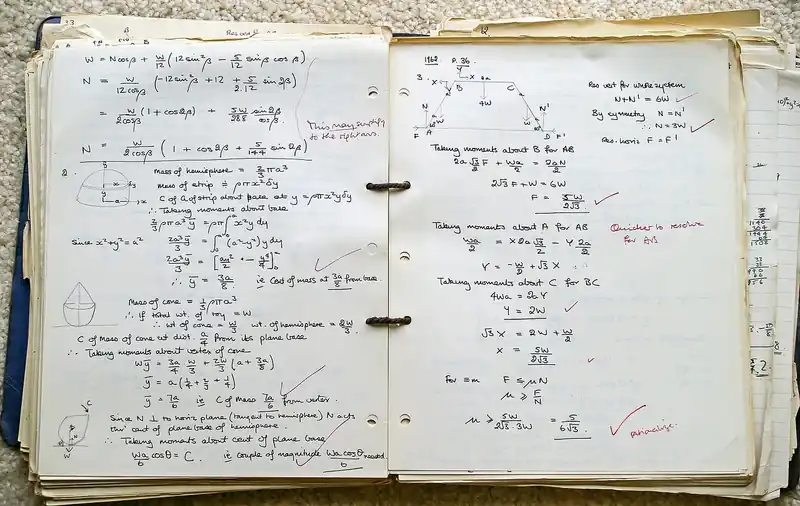 33
W = Ncosβ + W/12 (12sin²β − 5/12 sinβ cosβ)
N = W/12cosβ (−12sin²β + 12 + 5/2.12 sin2β)
= W/2cosβ (1 + cos2β) + 5W/288 sin2β/cosβ
This may simplify to the right ans.
N = W/2cosβ (1 + cos2β + 5/144 sin2β)
2.
Mass of hemisphere = 2/3 πa³
Mass of strip = ρπx²δy
C of G of strip about base at y = ρπx²yδy
∴ Taking moments about base
2/3 ρπa³ȳ = ρπ∫x²y dy
Since x²+y² = a²
2a³ȳ/3 = ∫(a²−y²)y dy
2a³ȳ/3 = [a²y²/2 − y⁴/4]
∴ ȳ = 3a/8 ie C of mass at 3a/8 from base.
Mass of cone = 1/3 πa³
∴ If total wt. of toy = W
∴ wt of cone = W/3 wt. of hemisphere = 2W/3.
C of Mass of cone at dist. a/4 from its plane base
∴ Taking moments about vertex of cone
Wȳ = 3a/4 W/3 + 2W/3 (a + 3a/8)
ȳ = a(1/4 + 2/3 + 1/4)
ȳ = 7a/6 ie C of mass 7a/6 from vertex.
Since N ⊥ to horiz plane (tangent to hemisphere) N acts
thro' cent of plane base of hemisphere.
∴ Taking moments about cent of plane base
Wa/6 cosθ = C. ie couple of magnitude Wa cosθ/6 needed
1962 P.36
3.
Y X B C 4W
N W N' W
F A D F'
Res vert for whole system
N+N' = 6W
By symmetry N = N'
∴ N = 3W
Res. horiz F = F'
Taking moments about B for AB
2a√3/2 F + Wa/2 = 2aN/2
2√3F + W = 6W
F = 5W/2√3
Taking moments about A for AB
Quicker to resolve for AB
Wa/2 = X2a√3/2 − Y 2a/2
Y = −W/2 + √3X
Taking moments about C for BC
4Wa = 2aY
Y = 2W
√3X = 2W + W/2
X = 5W/2√3
For =m F ≤ μN
μ ≥ F/N
μ ≥ 5W/2√3.3W = 5/6√3.
rationalise